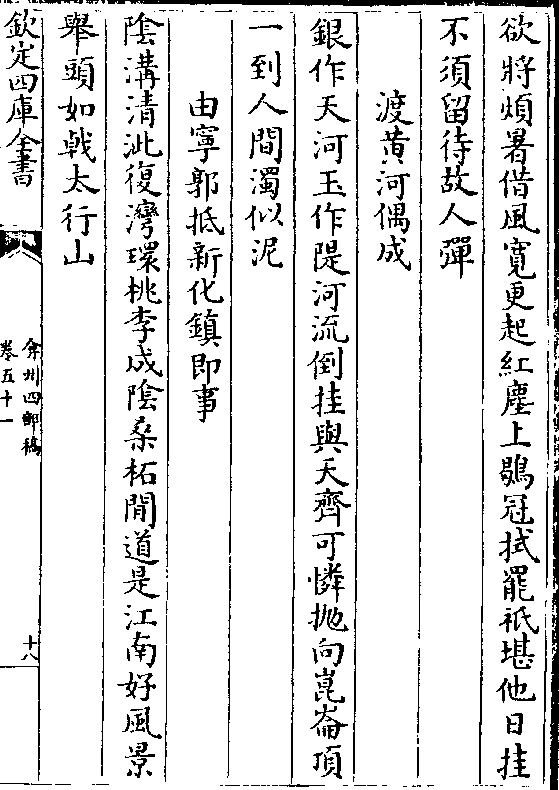 欲將煩暑借風寬更起紅塵上鶡冠拭罷祇堪他日挂
不須留待故人彈
渡黄河偶成
銀作天河玉作隄河流倒挂與天齊可憐抛向崑崙頂
一到人間濁似泥
由寧郭抵新化鎮即事
陰溝清沘復灣環桃李成陰桑柘閒道是江南好風景
舉頭如㦸太行山
欽定四庫全書
弇州四部稿
卷五十一
十八